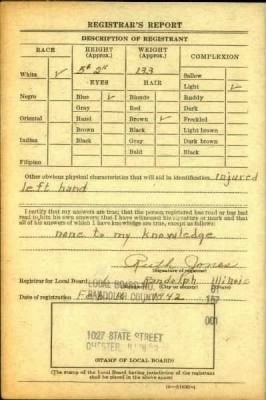 REGISTRAR'S REPORT
DESCRIPTION OF REGISTRANT
RACE HEIGHT (Approx.) WEIGHT (Approx.) COMPLEXION
White ✓ 5ft 2" 133 Sallow
EYES HAIR Light ✓
Negro Blue ✓ Blonde Ruddy
Gray Red Dark
Oriental Hazel Brown ✓ Freckled
Brown Black Light brown
Indian Black Gray Dark brown
Bald Black
Filipino
Other obvious physical characteristics that will aid in identification injured
left hand
I certify that my answers are true; that the person registered has read or has had
read to him his own answers; that I have witnessed his signature or mark and that
all of his answers of which I have knowledge are true, except as follows:
none to my knowledge
Ruth Jones
(Signature of registrar)
Registrar for Local Board Randolph Illinois
Date of registration Feb 1942
LOCAL BOARD
RANDOLPH COUNTY
157
001
1027 STATE STREET
CHESTER, ILLINOIS
(STAMP OF LOCAL BOARD)
(The stamp of the Local Board having jurisdiction of the registrant
shall be placed in the above space.)